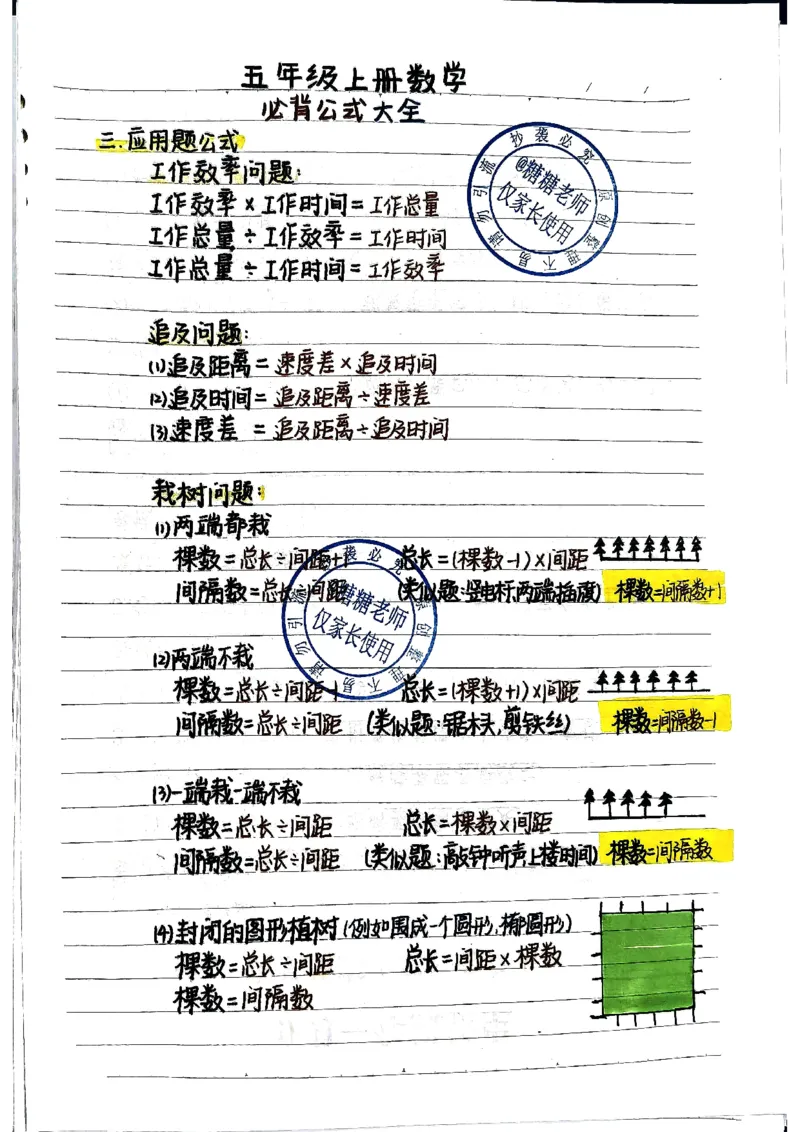 五年级上册数学
必背公式大全
三.应用题公式
工作效率问题:
工作效率×工作时间=工作总量
工作总量÷工作效率=工作时间
工作总量÷工作时间=工作效率
抄袭必究 原创整理不易 请勿引流
@糖糖老师
仅家长使用
追及问题:
(1)追及距离=速度差×追及时间
(2)追及时间=追及距离÷速度差
(3)速度差=追及距离÷追及时间
栽树问题:
(1)两端都栽
棵数=总长÷间距+1 总长=(棵数-1)×间距
间隔数=总长÷间距 (类似题:竖电杆,两端插旗) 棵数=间隔数+1
袭必究 原创整理不易 请勿引流
糖糖老师
仅家长使用
(2)两端不栽
棵数=总长÷间距-1 总长=(棵数+1)×间距
间隔数=总长÷间距 (类似题:锯木头,剪铁丝) 棵数=间隔数-1
(3)一端栽一端不栽
棵数=总长÷间距 总长=棵数×间距
间隔数=总长÷间距 (类似题:敲钟听声,上楼时间) 棵数=间隔数
(4)封闭的图形植树(例如围成一个圆形,椭圆形)
棵数=总长÷间距 总长=间距×棵数
棵数=间隔数